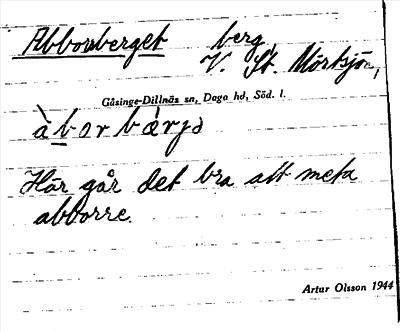 Abborrberget berg,
V. St. Mörtsjön,
Gåsinge-Dillnäs sn, Daga hd, Söd. l.
àborbærjə
Här går det bra att meta
abborre.
Artur Olsson 1944